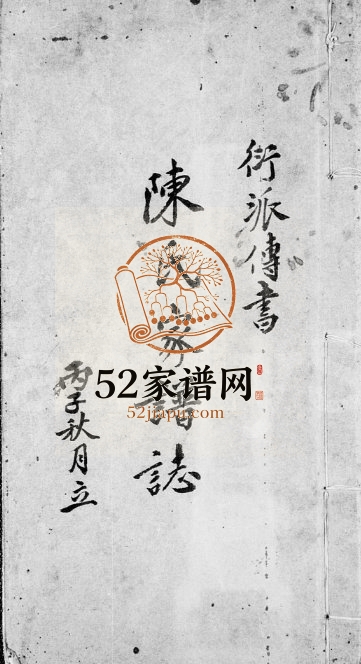 衍派傳書
陳氏家譜誌
丙子秋月立
52家谱网
52jiapu.com